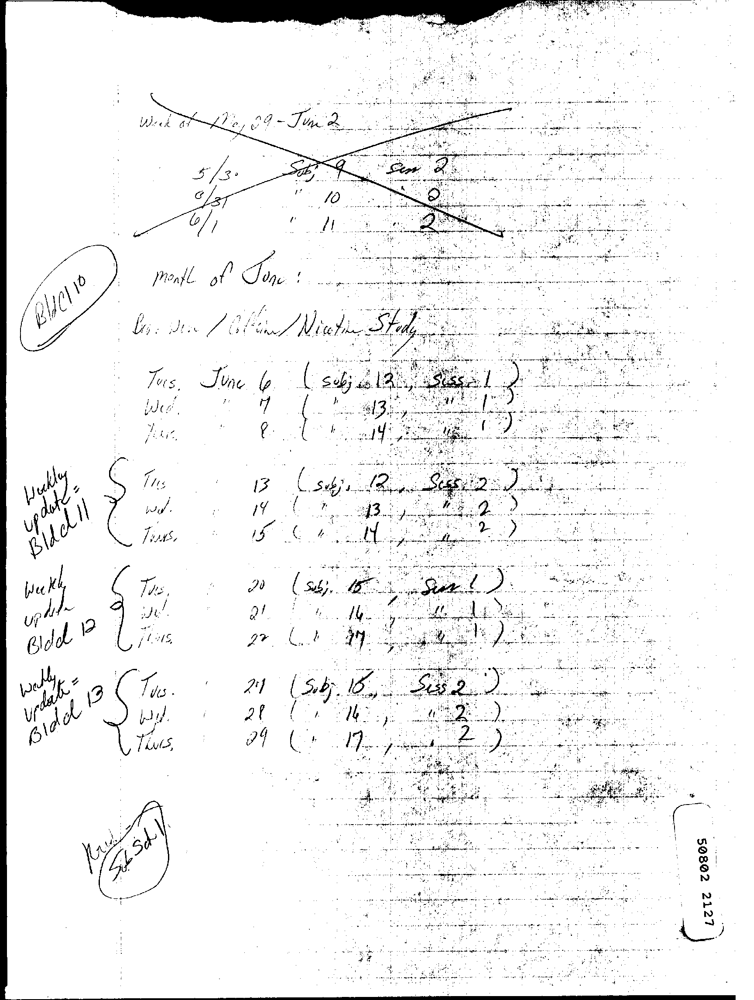 Week of May 29 - June 2
5/30 Subj 9 Sess 2
5/31 " 10 " 2
6/1 " 11 " 2
Bldcl 10
Month of June :
/ Caffeine / Nicotine Study
Tues. June 6 ( subj. 12 , Sess. 1 )
Wed. " 7 ( " 13 , " 1 )
Thurs. 8 ( " 14 , " 1 )
Weekly
update =
Bldcl 11
Tues 13 ( subj. 12 , Sess. 2 )
Wed. 14 ( " 13 , " 2 )
Thurs. 15 ( " 14 , " 2 )
Weekly
update
Bldcl 12
Tues. 20 ( subj. 15 , Sess 1 )
Wed. 21 " 16 , " 1 )
Thurs. 22 ( " 17 , " 1 )
Weekly
update =
Bldcl 13
Tues. 27 ( Subj. 15 , Sess 2 )
Wed. 28 ( " 16 , " 2 )
Thurs. 29 ( " 17 , " 2 )
SubSch1
50802 2127